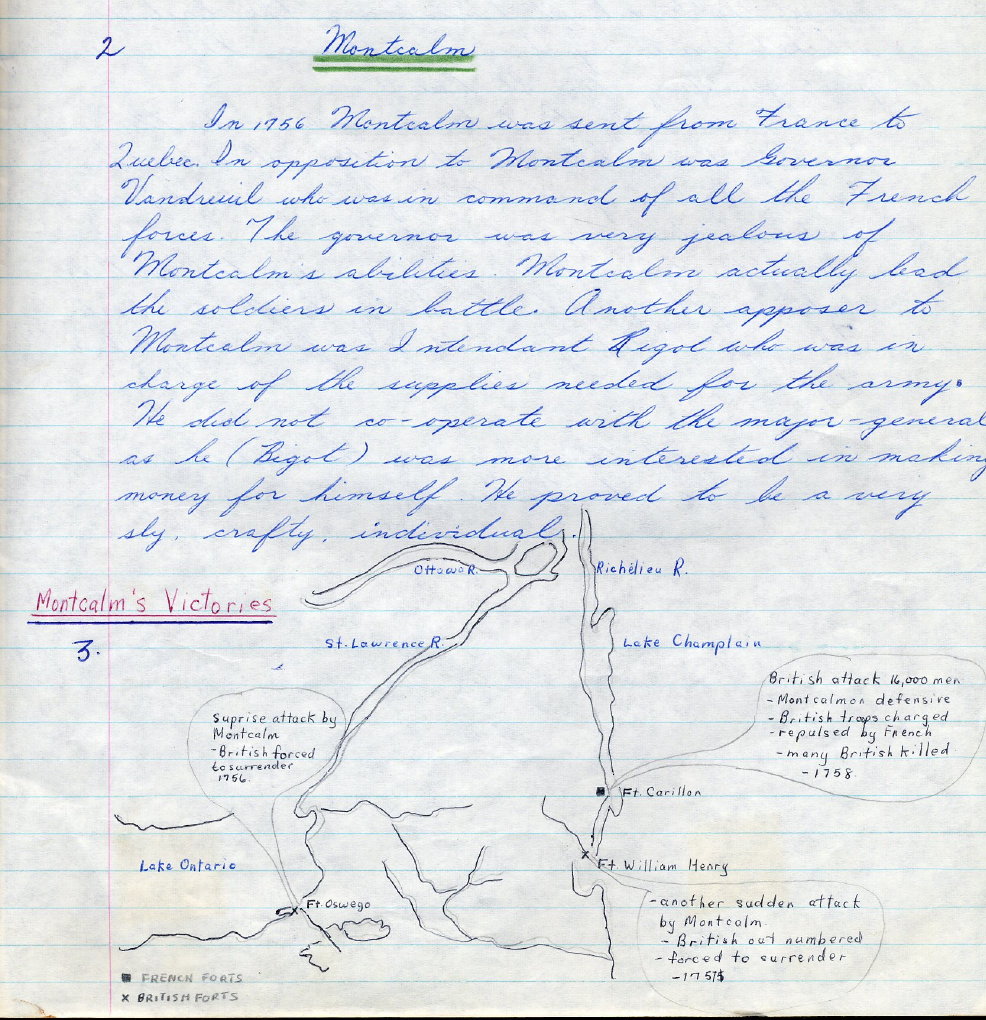 2 Montcalm
In 1756 Montcalm was sent from France to
Quebec. In opposition to Montcalm was Governor
Vandreuil who was in command of all the French
forces. The governor was very jealous of
Montcalm's abilities. Montcalm actually lead
the soldiers in battle. Another apposer to
Montcalm was Intendant Bigot who was in
charge of the supplies needed for the army.
He did not co-operate with the major-general
as he (Bigot) was more interested in making
money for himself. He proved to be a very
sly, crafty, individual.
Ottawa R.
Richélieu R.
Montcalm's Victories
3.
St. Lawrence R.
Lake Champlain
Suprise attack by
Montcalm
-British forced
to surrender
1756.
British attack 16,000 men
- Montcalm on defensive
- British troops charged
- repulsed by French
- many British killed
- 1758
Ft. Carillon
Lake Ontario
Ft. William Henry
Ft Oswego
- another sudden attack
by Montcalm.
- British out numbered
- forced to surrender
FRENCH FORTS
x BRITISH FORTS